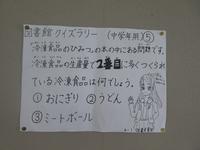 図書館クイズラリー (中学年用)⑤
冷凍食品のひみつの本の中にある問題です。
冷凍食品の生産量で2番目に多くつくられ
ている冷凍食品は何でしょう。
①おにぎり ②うどん
③ミートボール